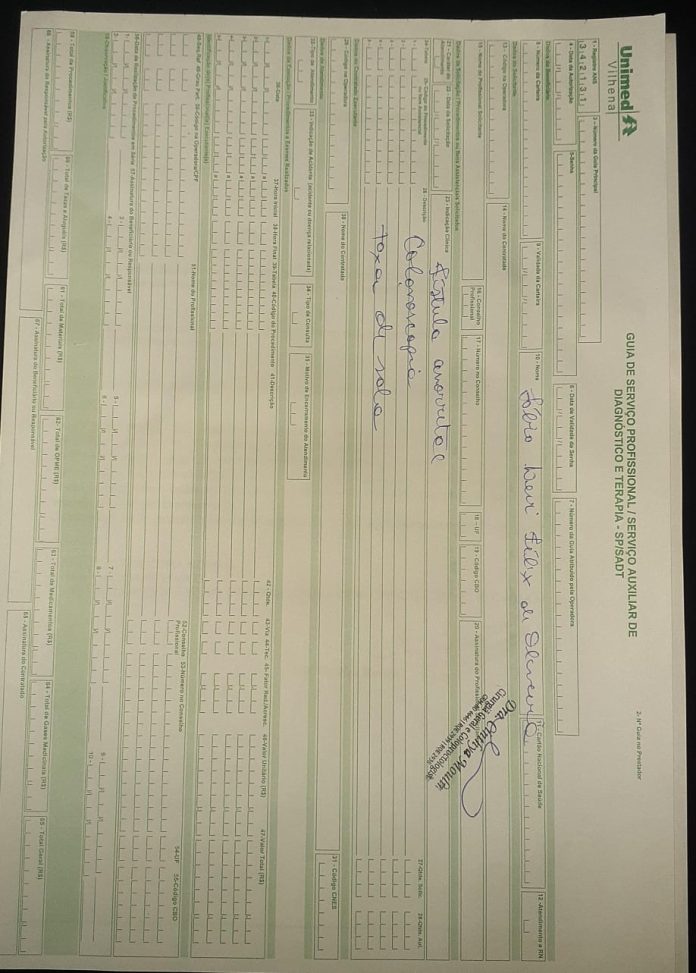 Unimed
Vilhena
GUIA DE SERVIÇO PROFISSIONAL / SERVIÇO AUXILIAR DE
DIAGNÓSTICO E TERAPIA - SP/SADT
2- Nº Guia no Prestador
1 - Registro ANS
342131
3 - Número da Guia Principal
4 - Data da Autorização
5-Senha
6 - Data de Validade da Senha
7 - Número da Guia Atribuído pela Operadora
Dados do Beneficiário
8 - Número da Carteira
9 - Validade da Carteira
10 - Nome
Levi Félix de Oliveira
11 - Cartão Nacional de Saúde
12 - Atendimento a RN
Dados do Solicitante
13 - Código na Operadora
14 - Nome do Contratado
15 - Nome do Profissional Solicitante
16 - Conselho
Profissional
17 - Número no Conselho
18 - UF
19 - Código CBO
20 - Assinatura do Profissional
Dra.
Cirurgia Geral e Coloproctologia
Dados da Solicitação / Procedimentos ou Itens Assistenciais Solicitados
21 - Caráter do
Atendimento
22 - Data da Solicitação
23 - Indicação Clínica
Fístula anorretal
24-Tabela
25- Código do Procedimento
ou Item Assistencial
26 - Descrição
27-Qtde. Solic.
28-Qtde. Aut.
Colonoscopia
taxa de sala
Dados do Contratado Executante
29 - Código na Operadora
30 - Nome do Contratado
31 - Código CNES
Dados do Atendimento
32-Tipo de Atendimento
33 - Indicação de Acidente (acidente ou doença relacionada)
34 - Tipo de Consulta
35 - Motivo de Encerramento do Atendimento
Dados da Execução / Procedimentos e Exames Realizados
36-Data
37-Hora Inicial
38-Hora Final
39-Tabela
40-Código do Procedimento
41-Descrição
42 - Qtde.
43-Via
44-Tec.
45- Fator Red./Acresc.
46-Valor Unitário (R$)
47-Valor Total (R$)
Identificação do(s) Profissional(is) Executante(s)
48-Seq. Ref
49-Grau Part.
50-Código na Operadora/CPF
51-Nome do Profissional
52-Conselho
Profissional
53-Número no Conselho
54-UF
55-Código CBO
56-Data de Realização de Procedimentos em Série
57-Assinatura do Beneficiário ou Responsável
1 -
2 -
3 -
4 -
5 -
6 -
7 -
8 -
9 -
10 -
58-Observação / Justificativa
59 - Total de Procedimentos (R$)
60 - Total de Taxas e Aluguéis (R$)
61 - Total de Materiais (R$)
62- Total de OPME (R$)
63 - Total de Medicamentos (R$)
64 - Total de Gases Medicinais (R$)
65 - Total Geral (R$)
66 - Assinatura do Responsável pela Autorização
67 - Assinatura do Beneficiário ou Responsável
68 - Assinatura do Contratado